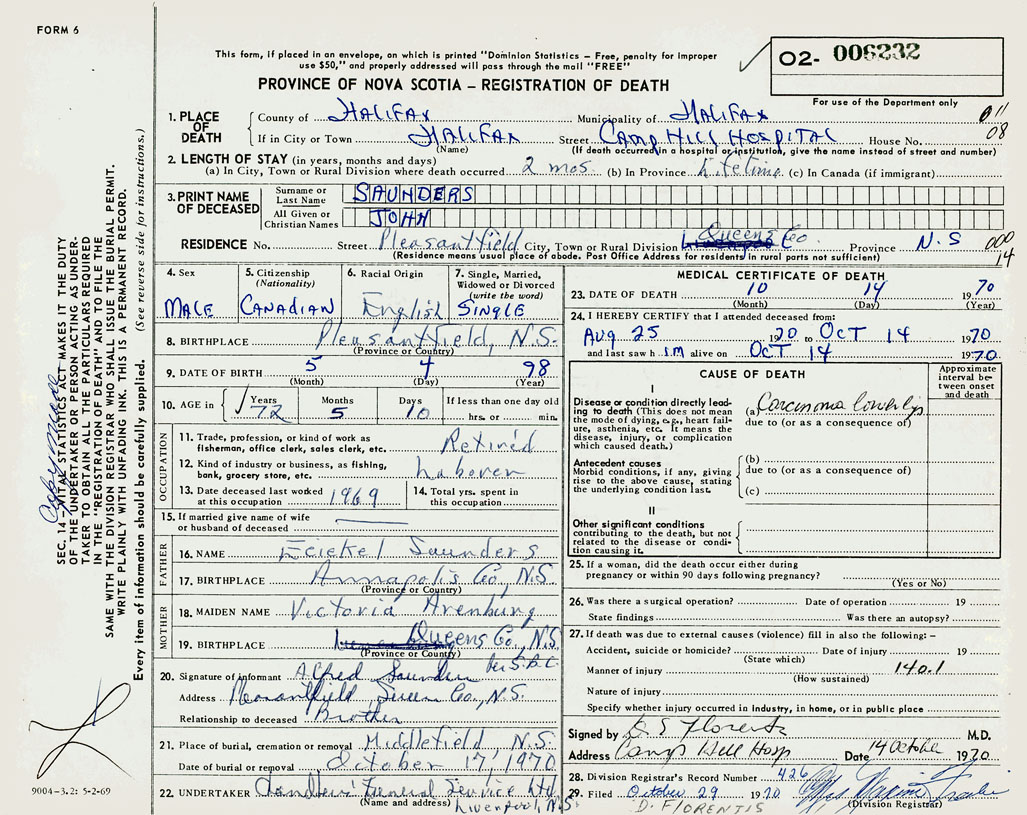 FORM 6
This form, if placed in an envelope, on which is printed "Dominion Statistics – Free, penalty for improper
use $50," and properly addressed will pass through the mail "FREE"
02- 006232
For use of the Department only
PROVINCE OF NOVA SCOTIA – REGISTRATION OF DEATH
1. PLACE OF DEATH
County of HALIFAX Municipality of HALIFAX 011
If in City or Town HALIFAX Street CAMP HILL HOSPITAL House No. 08
(Name) (If death occurred in a hospital or institution, give the name instead of street and number)
2. LENGTH OF STAY (in years, months and days)
(a) In City, Town or Rural Division where death occurred 2 mos. (b) In Province Lifetime (c) In Canada (if immigrant)
3. PRINT NAME OF DECEASED
Surname or Last Name SAUNDERS
All Given or Christian Names JOHN
RESIDENCE No. Street Pleasantfield City, Town or Rural Division Queens Co. Province N.S 000
(Residence means usual place of abode. Post Office Address for residents in rural parts not sufficient) 14
4. Sex
MALE
5. Citizenship
(Nationality)
CANADIAN
6. Racial Origin
English
7. Single, Married,
Widowed or Divorced
(write the word)
SINGLE
8. BIRTHPLACE Pleasantfield, N.S.
(Province or Country)
9. DATE OF BIRTH 5 4 98
(Month) (Day) (Year)
10. AGE in Years Months Days If less than one day old
72 5 10 hrs. or min.
OCCUPATION
11. Trade, profession, or kind of work as
fisherman, office clerk, sales clerk, etc. Retired
12. Kind of industry or business, as fishing,
bank, grocery store, etc. Laborer
13. Date deceased last worked
at this occupation 1969
14. Total yrs. spent in
this occupation
15. If married give name of wife
or husband of deceased
FATHER
16. NAME Eziekel Saunders
17. BIRTHPLACE Annapolis Co, N.S.
(Province or Country)
MOTHER
18. MAIDEN NAME Victoria Arenburg
19. BIRTHPLACE Queens Co, N.S.
(Province or Country)
20. Signature of informant Alfred Saunders per
Address Pleasantfield Queens Co., N.S.
Relationship to deceased Brother
21. Place of burial, cremation or removal Middlefield, N.S.
Date of burial or removal October 17, 1970
22. UNDERTAKER Chandlers' General Service Ltd
(Name and address) Liverpool, N.S.
MEDICAL CERTIFICATE OF DEATH
23. DATE OF DEATH 10 14 1970
(Month) (Day) (Year)
24. I HEREBY CERTIFY that I attended deceased from:
Aug 25 1970 to OCT 14 1970
and last saw h im alive on OCT 14 1970
CAUSE OF DEATH
Approximate
interval be-
tween onset
and death
I
Disease or condition directly lead-
ing to death (This does not mean
the mode of dying, e.g., heart fail-
ure, asthenia, etc. It means the
disease, injury, or complication
which caused death.)
(a) Carcinoma lower lip
due to (or as a consequence of)
Antecedent causes
Morbid conditions, if any, giving
rise to the above cause, stating
the underlying condition last.
(b)
due to (or as a consequence of)
(c)
II
Other significant conditions
contributing to the death, but not
related to the disease or condi-
tion causing it.
25. If a woman, did the death occur either during
pregnancy or within 90 days following pregnancy?
(Yes or No)
26. Was there a surgical operation? Date of operation 19
State findings Was there an autopsy?
27. If death was due to external causes (violence) fill in also the following: –
Accident, suicide or homicide? Date of injury 19
(State which)
Manner of injury 140.1
(How sustained)
Nature of injury
Specify whether injury occurred in industry, in home, or in public place
Signed by D S Florentis M.D.
Address Camp Hill Hosp Date 14 October 1970
28. Division Registrar's Record Number 426
29. Filed October 29 1970
(Division Registrar)
D. FLORENTIS
SEC. 14 – VITAL STATISTICS ACT – MAKES IT THE DUTY
OF THE UNDERTAKER OR PERSON ACTING AS UNDER-
TAKER TO OBTAIN ALL THE PARTICULARS REQUIRED
IN THE "REGISTRATION OF DEATH" AND TO FILE THE
SAME WITH THE DIVISION REGISTRAR WHO SHALL ISSUE THE BURIAL PERMIT.
WRITE PLAINLY WITH UNFADING INK. THIS IS A PERMANENT RECORD.
Every item of information should be carefully supplied. (See reverse side for instructions.)
9004-3.2: 5-2-69